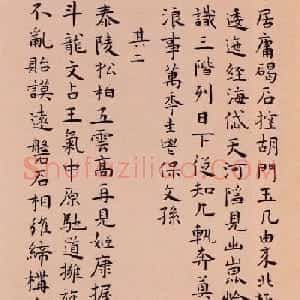 居庸碣石控胡門玉几由来北
逶迤經海岱天河隐見出崑
識三階列日下從知九軌奔
浪事萬季保文孫
其二
泰陵松柏五雲高再見姬康握
斗龍文占王氣中原馳道擁
不亂貽謨遠盤石相維締構
Shufaziliao.com